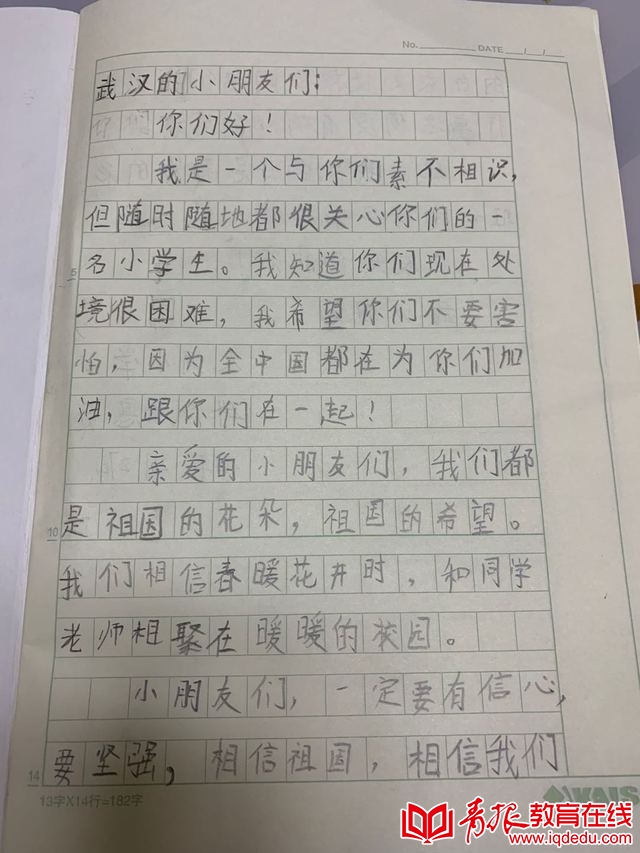 No. DATE / /
武汉的小朋友们:
你们好!
我是一个与你们素不相识,
但随时随地都很关心你们的一
5 名小学生。我知道你们现在处
境很困难,我希望你们不要害
怕,因为全中国都在为你们加
油,跟你们在一起!
亲爱的小朋友们,我们都
10 是祖国的花朵,祖国的希望。
我们相信春暖花开时,和同学
老师相聚在暖暖的校园。
小朋友们,一定要有信心,
14 要坚强,相信祖国,相信我们
13字X14行=182字
青报教育在线
www.iqdedu.com